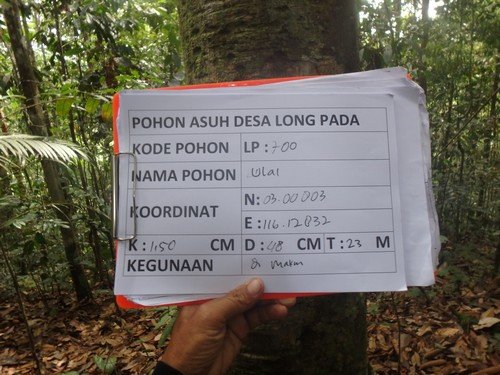 POHON ASUH DESA LONG PADA
KODE POHON LP : 700
NAMA POHON Ulai
KOORDINAT N: 03.00003
E : 116.12832
K : 1,50 CM D : 48 CM T : 23 M
KEGUNAAN di makan